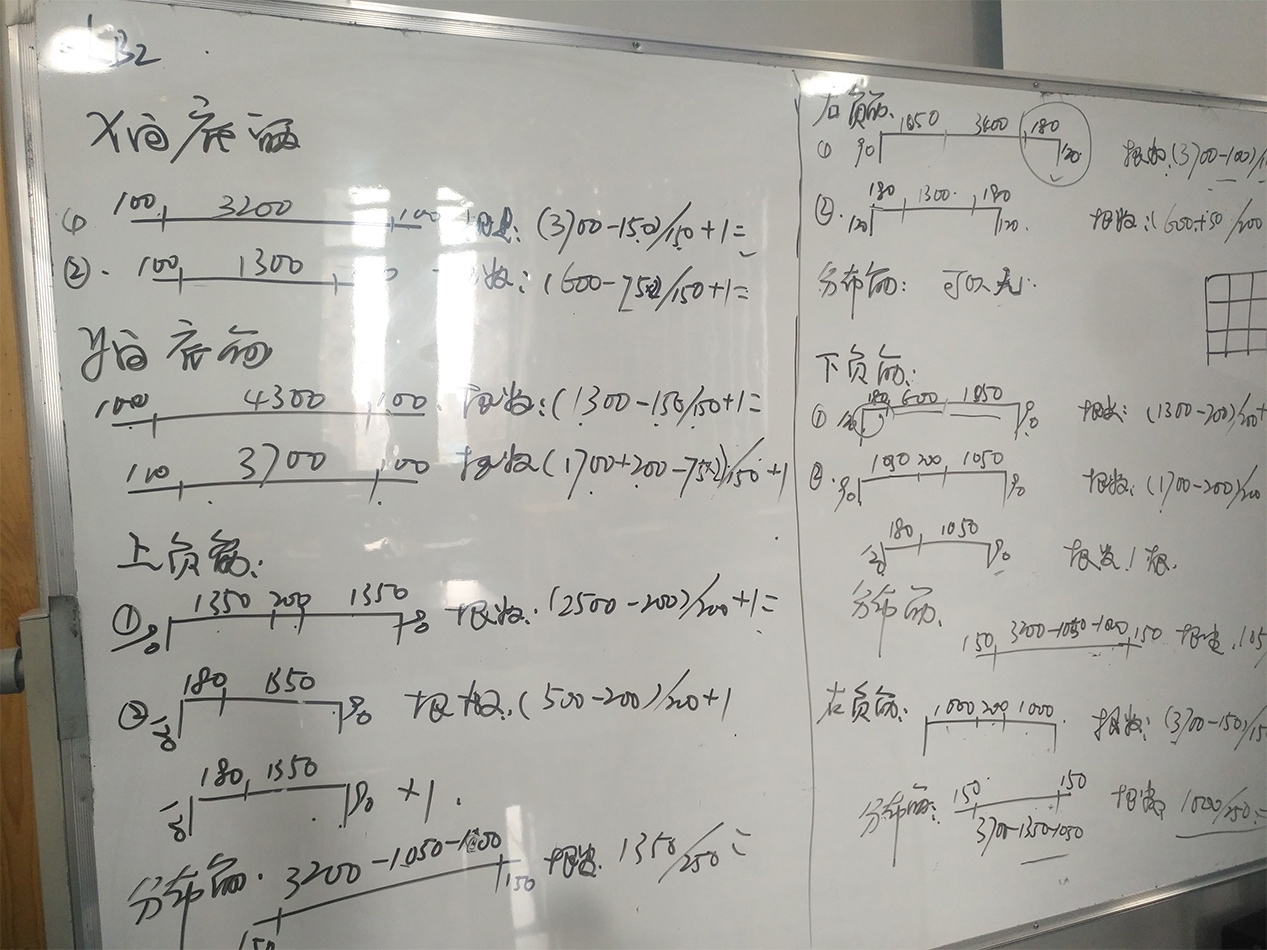 LB2
X向底筋
① 100 3200 100 根数: (3700-150)/150+1=
② 100 1300 数: (600-75×2)/150+1=
Y向底筋
100 4300 100 根数: (1300-150)/150+1=
100 3700 100 根数 (1700+200-75×2)/150+1
上负筋:
① 90 1350 200 1350 90 根数: (2500-200)/200+1=
② 120 180 1350 90 根数: (500-200)/200+1
120 180 1350 90 +1.
分布筋. 150 3200-1050-1000 150 根数. 1350/250=
右负筋:
① 90 1050 3400 180 120 根数: (3700-100)/1
②. 120 180 1300 180 120. 根数: (600+50/200
分布筋: 可以无.
下负筋:
① 180 600 1050 90 根数: (1300-200)/200+
②. 90 1050 200 1050 90 根数: (1700-200)/200
120 180 1050 90 根数 1根.
分布筋. 150 3200-1050-1000 150 根数. 105
左负筋: 1000 200 1000 根数: (3700-150)/15
分布筋: 150 3700-1350-1050 150 根数: 1000/250=